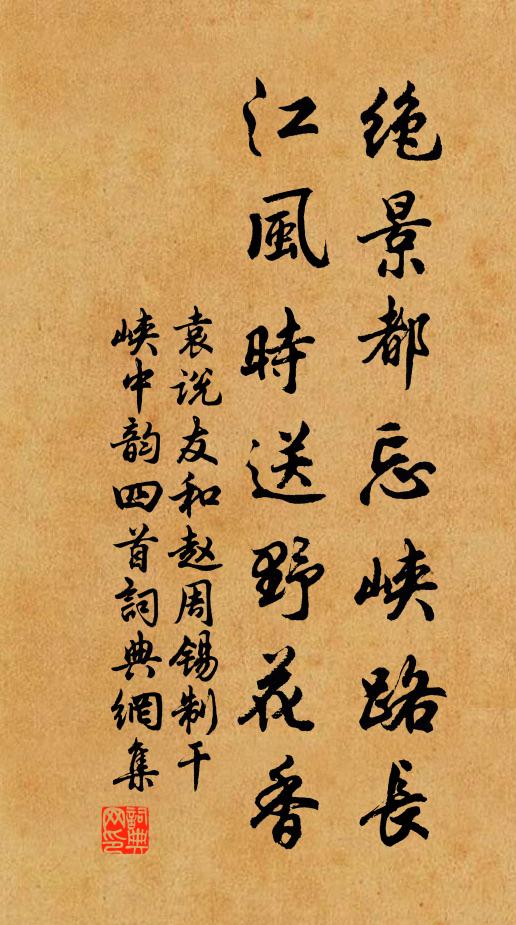 绝景都忘峡路長
江風時送野花香
袁说友和赵周锡制干
峡中韵四首詞典網集
詞典
网印